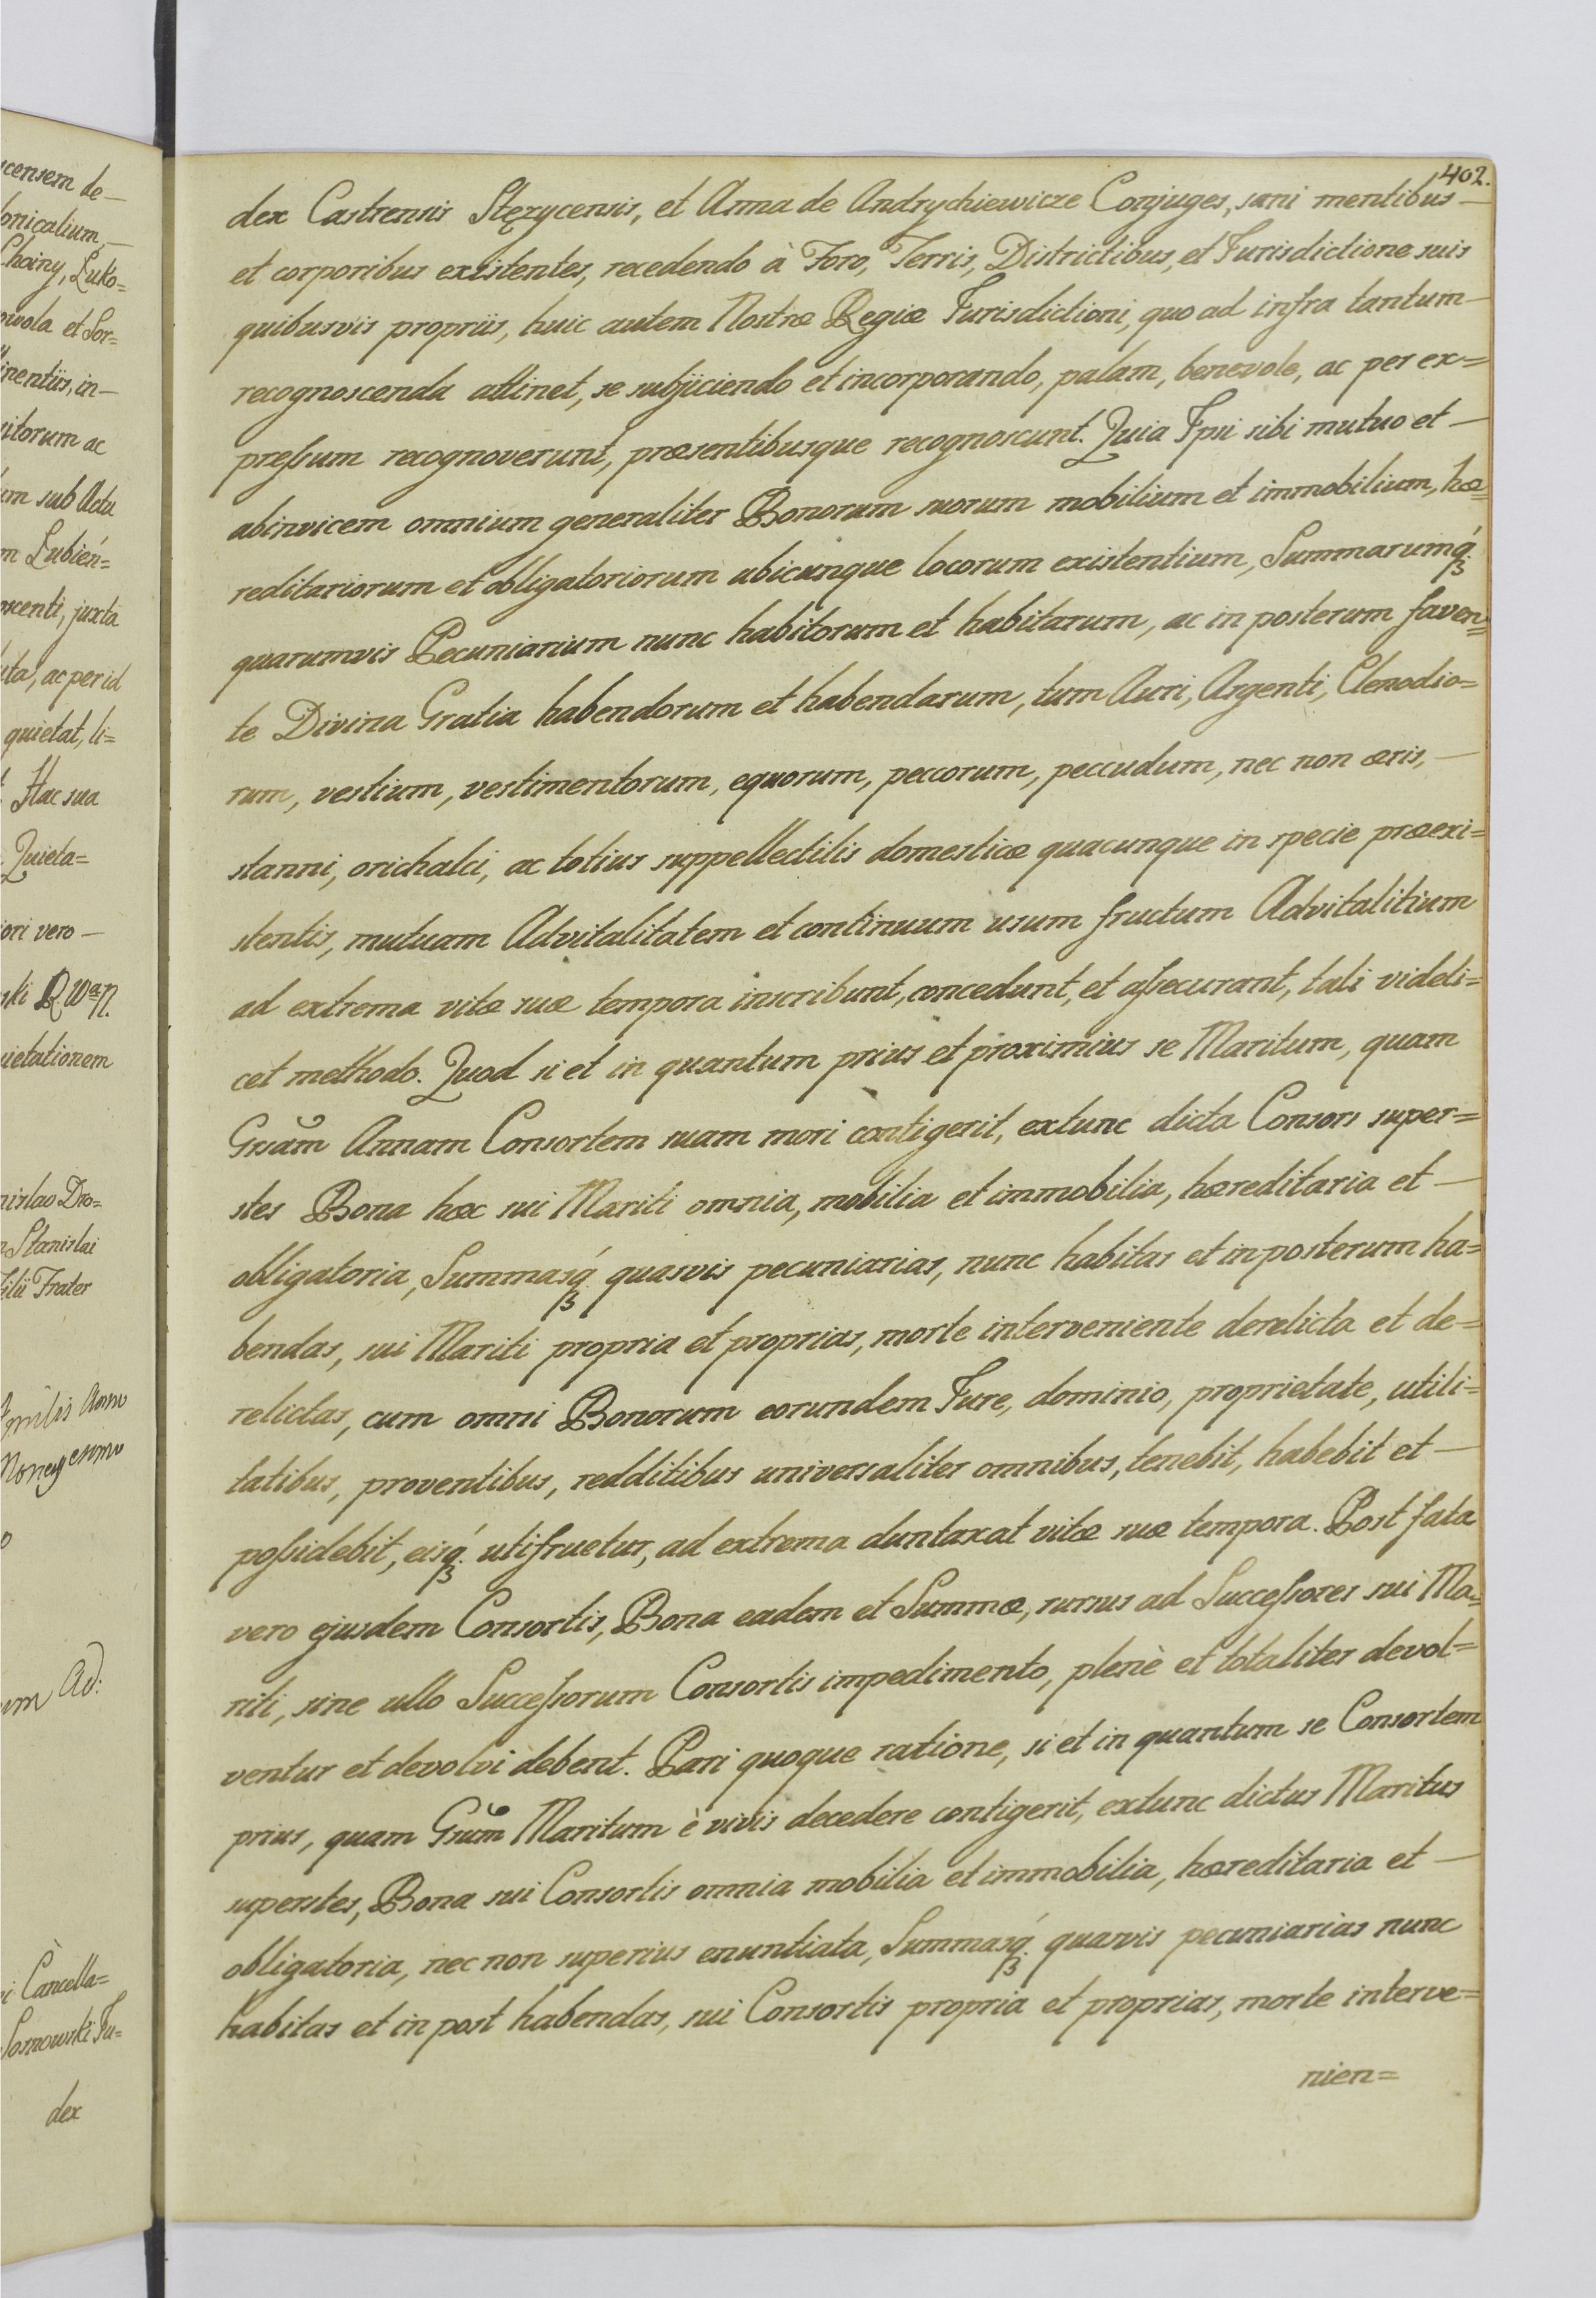 censem de—
onicalium—
Choiny, Luko=
owola et Sor=
inentiis, in—
itorum ac
um sub Actu
m Lubień=
oscenti, juxta
uta, ac per id
quietat, li=
Hac sua
Quieta=
iori vero—
ski
uietationem
nislao Dro=
n Stanislai
Filii Frater
Ad:
i Cancella=
Sosnowski Ju=
dex
402.
dex Castrensis Stęzycensis, et Anna de Andrychiewicze Conjuges, sani mentibus—
et corporibus existentes, recedendo à Foro, Terris, Districtibus, et Jurisdictione suis
quibusvis propriis, huic autem Nostræ Regiæ Jurisdictioni, quo ad infra tantum—
recognoscenda attinet, se subjiciendo et incorporando, palam, benevole, ac per ex=
preſsum recognoverunt, præsentibusque recognoscunt. Quia Ipsi sibi mutuo et—
abinvicem omnium generaliter Bonorum suorum mobilium et immobilium, hæ=
reditariorum et obligatoriorum ubicunque locorum existentium, Summarumq́ꝫ
quarumvis Pecuniarium nunc habitorum et habitarum, ac in posterum faven=
te Divina Gratia habendorum et habendarum, tum Auri, Argenti, Clenodio=
rum, vestium, vestimentorum, equorum, peccorum, peccudum, nec non æris,—
stanni, orichalci, ac totius suppellectilis domesticæ quacunque in specie præexi=
stentis, mutuam Advitalitatem et continuum usum fructum Advitalitium
ad extrema vitæ suæ tempora inscribunt, concedunt, et aſsecurant, tali videli=
cet methodo. Quod si et in quantum prius et proximius se Maritum, quam
Gsam̃ Annam Consortem suam mori contigerit, extunc dicta Consors super=
stes Bona hæc sui Mariti omnia, mobilia et immobilia, hæreditaria et—
obligatoria, Summasq́ꝫ quasvis pecuniarias, nunc habitas et in posterum ha=
bendas, sui Mariti propria et proprias, morte interveniente derelicta et de=
relictas, cum omni Bonorum eorundem Jure, dominio, proprietate, utili=
tatibus, proventibus, redditibus universaliter omnibus, tenebit, habebit et—
poſsidebit, eisq́ꝫ utifruetur, ad extrema duntaxat vitæ suæ tempora. Post fata
vero ejusdem Consortis, Bona eadem et Summæ, rursus ad Succeſsores sui Ma=
riti, sine ullo Succeſsorum Consortis impedimento, plenè et totaliter devol=
ventur et devolvi debent. Pari quoque ratione, si et in quantum se Consortem
prius, quam Gsum̃ Maritum è vivis decedere contigerit, extunc dictus Maritus
superstes, Bona sui Consortis omnia mobilia et immobilia, hæreditaria et—
obligatoria, nec non superius enuntiata, Summasq́ꝫ quasvis pecuniarias nunc
habitas et in post habendas, sui Consortis propria et proprias, morte interve=
nien=